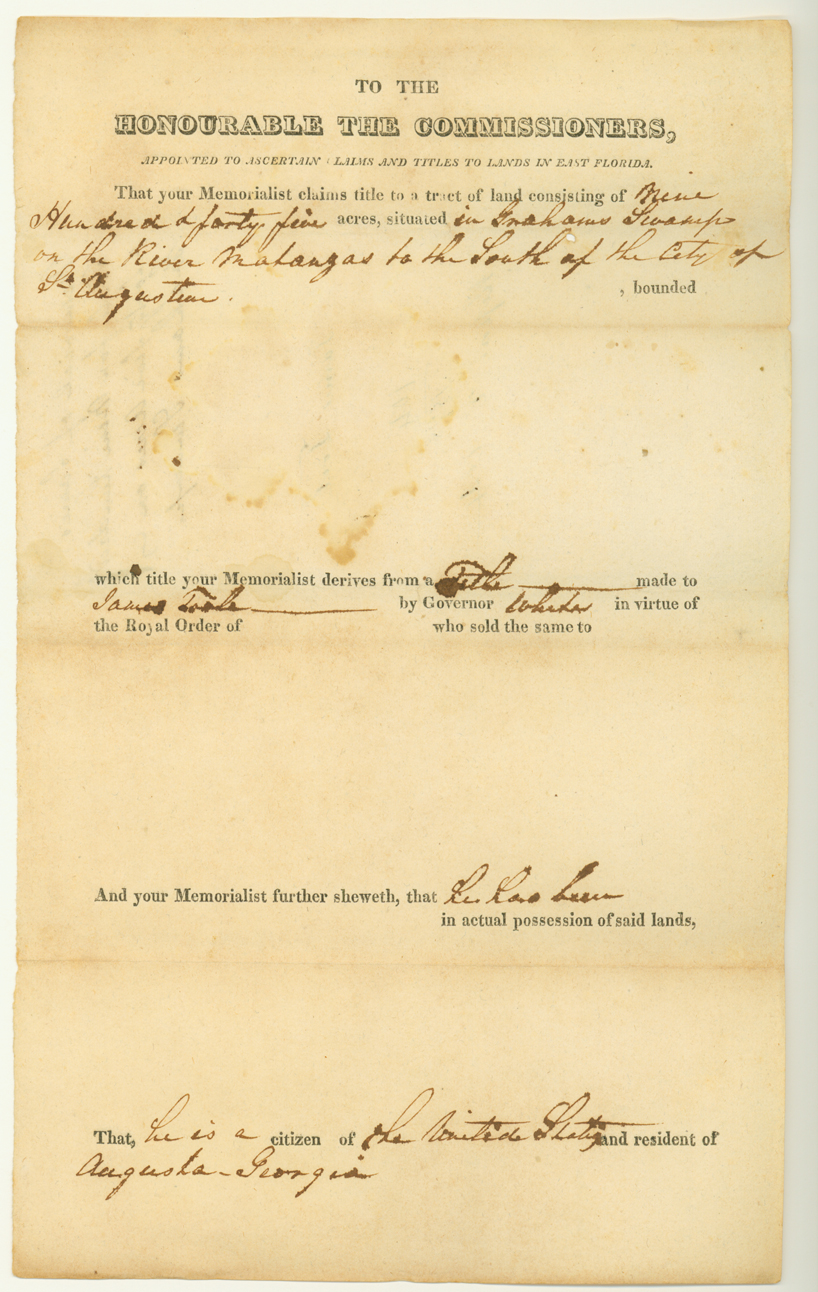 TO THE
HONOURABLE THE COMMISSIONERS,
APPOINTED TO ASCERTAIN CLAIMS AND TITLES TO LANDS IN EAST FLORIDA.
That your Memorialist claims title to a tract of land consisting of Nine
Hundred & forty five acres, situated in Grahams Swamp
on the River Matanzas to the South of the City of
St. Augustine.
, bounded
which title your Memorialist derives from a Title made to
James by Governor White in virtue of
the Royal Order of who sold the same to
And your Memorialist further sheweth, that he has been
in actual possession of said lands,
That, he is a citizen of the United States and resident of
Augusta - Georgia